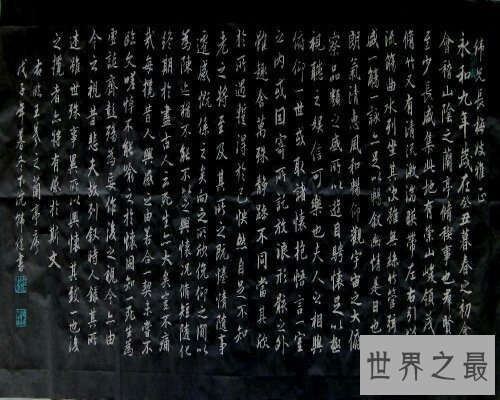 永和九年歲在癸丑暮春之初會
會稽山陰之蘭亭脩稧事也羣賢
至少長咸集此地有崇山峻領茂
脩竹又有清流激湍映帶左右引以
流觴曲水列坐其次雖無絲竹管弦
盛一觴一詠亦足以暢敘幽情是日也
朗氣清惠風和暢仰觀宇宙之大俯
察品類之盛所以遊目騁懷足以極
視聽之娛信可樂也夫人之相與
俯仰一世或取諸懷抱悟言一室
之內或因寄所託放浪形骸之外
雖趣舍萬殊靜躁不同當其欣
於所遇暫得於己怏然自足不知
老之將至及其所之既惓情隨事
遷感慨係之矣向之所欣俛仰之間以
為陳迹猶不能不以之興懷況脩短隨化
終期於盡古人云死生亦大矣豈不痛
哉每攬昔人興感之由若合一契未嘗不
臨文嗟悼不能喻之於懷固知一死生為
虛誕齊彭殤為妄作後之視今亦由
今之視昔悲夫故列敘時人錄其所
述雖世殊事異所以興懷其致一也後
之攬者亦將有感於斯文
右臨王羲之蘭亭序
戊子年
世界之最